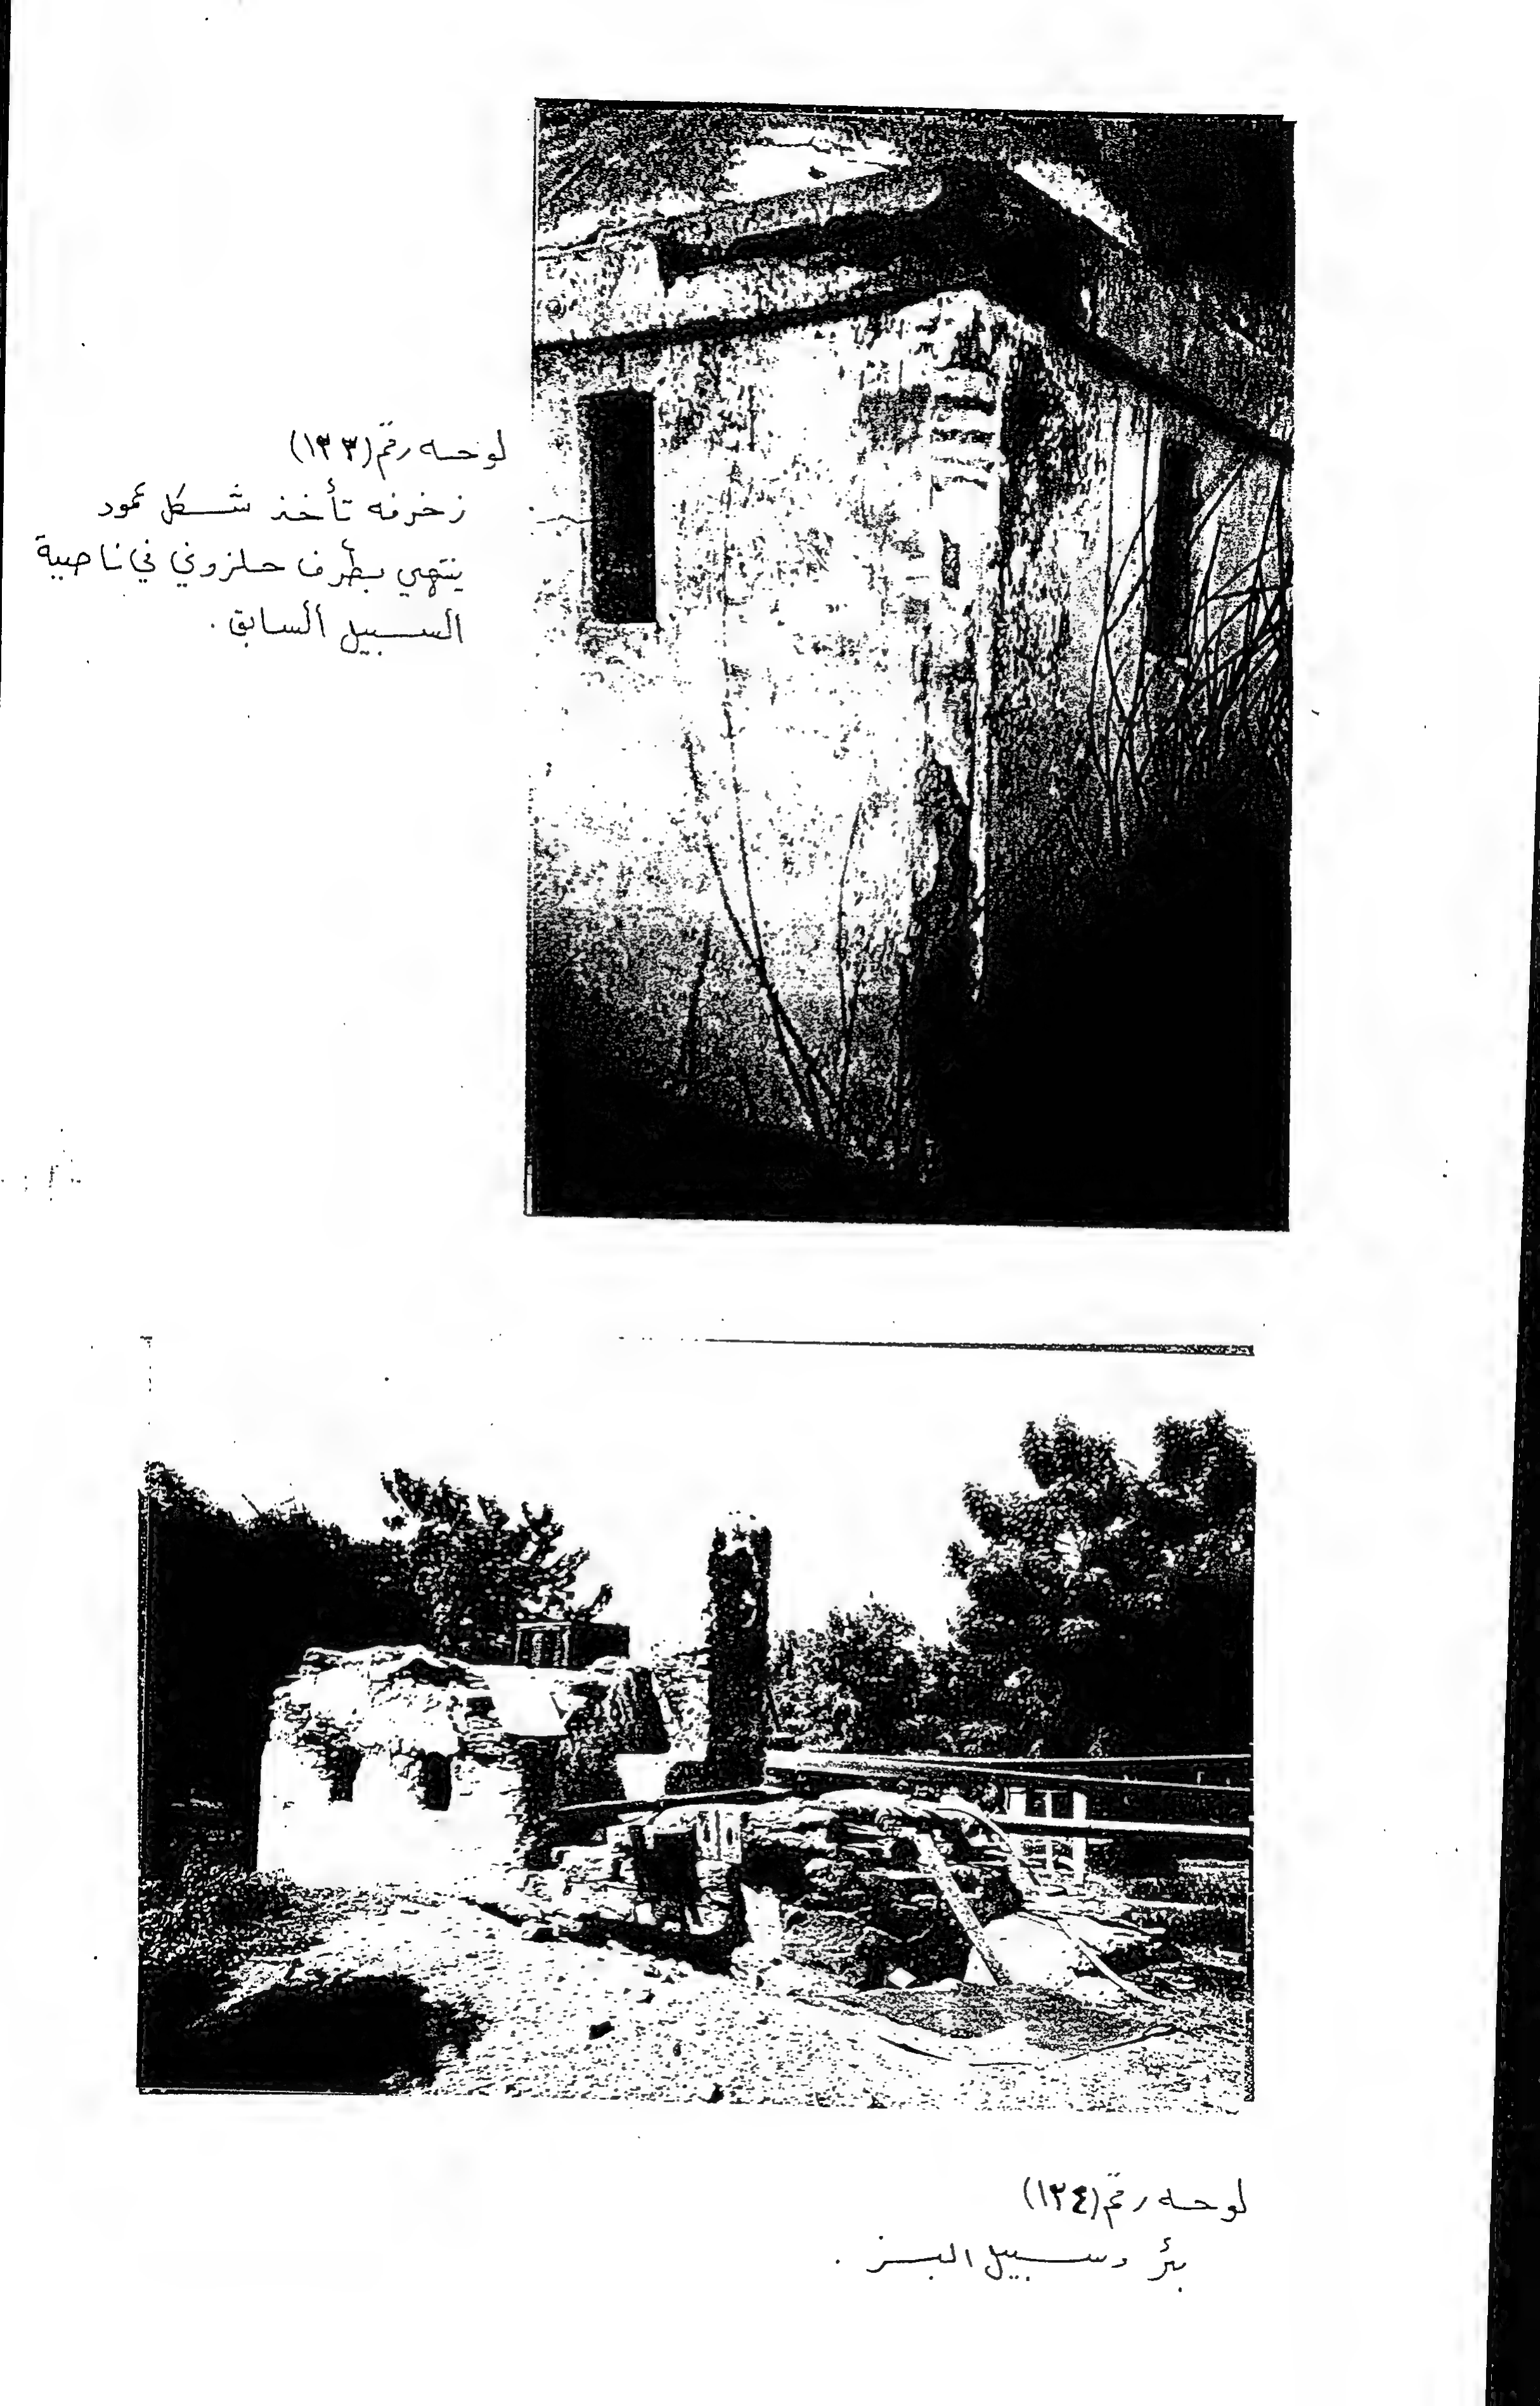 لوحه رقم (١٣٣)
زخرفه تأخذ شكل عمود
ينتهي بطرف حلزوني في ناصية
السبيل السابق .
لوحه رقم (١٣٤)
بئر وسبيل البز .